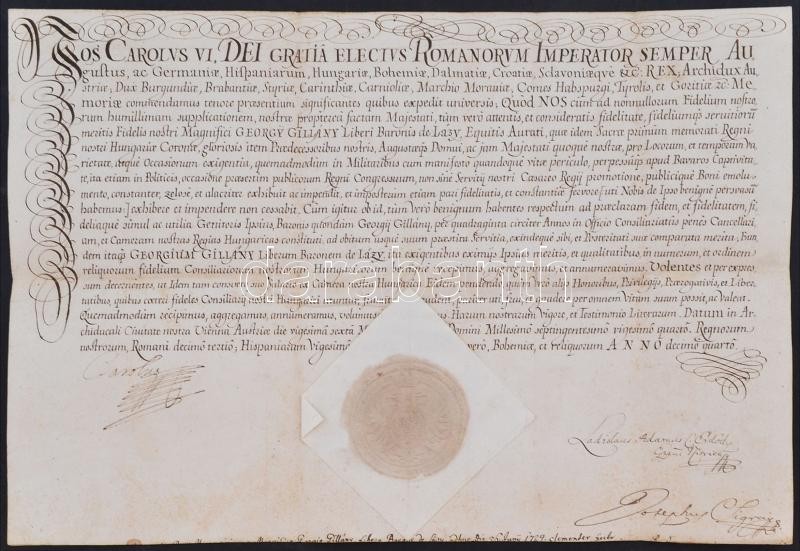 NOS CAROLVS VI. DEI GRATIÂ ELECTVS ROMANORVM IMPERATOR SEMPER AU-
gustus, ac Germaniæ, Hispaniarum, Hungariæ, Bohemiæ, Dalmatiæ, Croatiæ, Sclavoniæqve &c: REX; Archidux Au-
striæ; Dux Burgundiæ, Brabantiæ, Styriæ, Carinthiæ, Carnioliæ, Marchio Moraviæ, Comes Habspurgi, Tyrolis, et Goritiæ &c: Me-
moriæ commendamus tenore præsentium significantes quibus expedit universis; Quòd NOS cum ad nonnullorum Fidelium nostro-
rum humillimam supplicationem, nostræ propterea factam Majestati, tùm verò attentis, et consideratis fidelitate, fideliumqve servitiorum
meritis Fidelis nostri Magnifici GEORGY GILLANY Liberi Baronis de LAZY, Equitis Aurati, quæ idem Sacræ primum memorati Regni
nostri Hungariæ Coronæ, gloriosis item Prædecessoribus nostris, Augustæqve Domui, ac jam Majestati quoque nostræ, pro Locorum, et temporum va-
rietate, atque Occasionum exigentia, quemadmodum in Militaribus cum manifesto quandoque vitæ periculo, perpessaque apud Bavaros Captivita-
te, ita etiam in Politicis, occasione præsertim publicorum Regni Congressuum, non sine Servitÿ nostri Cæsareo Regÿ promotione, publicique Boni emolu-
mento, constanter, zelosè, et alacriter exhibuit ac impendit, et imposterum etiam pari fidelitatis, et constantiæ fervore, uti Nobis de Ipso benignè persvasum
habemus, exhibere et impendere non cessabit. Cum igitur ob id, tùm verò benignum habentes respectum ad præclaram fidem, et fidelitatem, fi-
deliaque simul ac utilia Genitoris Ipsius, Baronis qvondam Georgÿ Gillanÿ, per quadraginta circiter Annos in Officio Consiliariatûs penès Cancellari-
am, et Cameram nostras Regias Hungaricas constituti, ad obitum usque suum præstita Servitia, exindeque sibi, et Posteritati suæ comparata merita; Eun-
dem itaque GEORGIUM GILLANY Liberum Baronem de LAZY, ita exigentibus eximÿs Ipsius meritis, et qualitatibus, in numerum, et ordinem
reliquorum fidelium Consiliariorum nostrorum Hungaricorum benignè recipimus, aggregamus, et annumeravimus. Volentes et per expres-
sum decernentes, ut Idem tam
tatibus, quibus cæteri fideles Consiliarÿ nostri Hungari gaudere, per omnem vitam suam possit, ac valeat.
Quemadmodum recipimus, aggregamus, annumeramus, volumus Harum nostrarum Vigore, et Testimonio Literarum. Datum in Ar-
chiducali Civitate nostra Vienna Austriæ die vigesima sextâ Domini Millesimo Septingentesimo vigesimo quarto. Regnorum
nostrorum, Romani decimo tertio; Hispaniarum Vigesimo verò, Bohemiæ, et reliquorum ANNO decimo quarto.
Carolus
Ladislaus Adamus
Josephus
darabanth